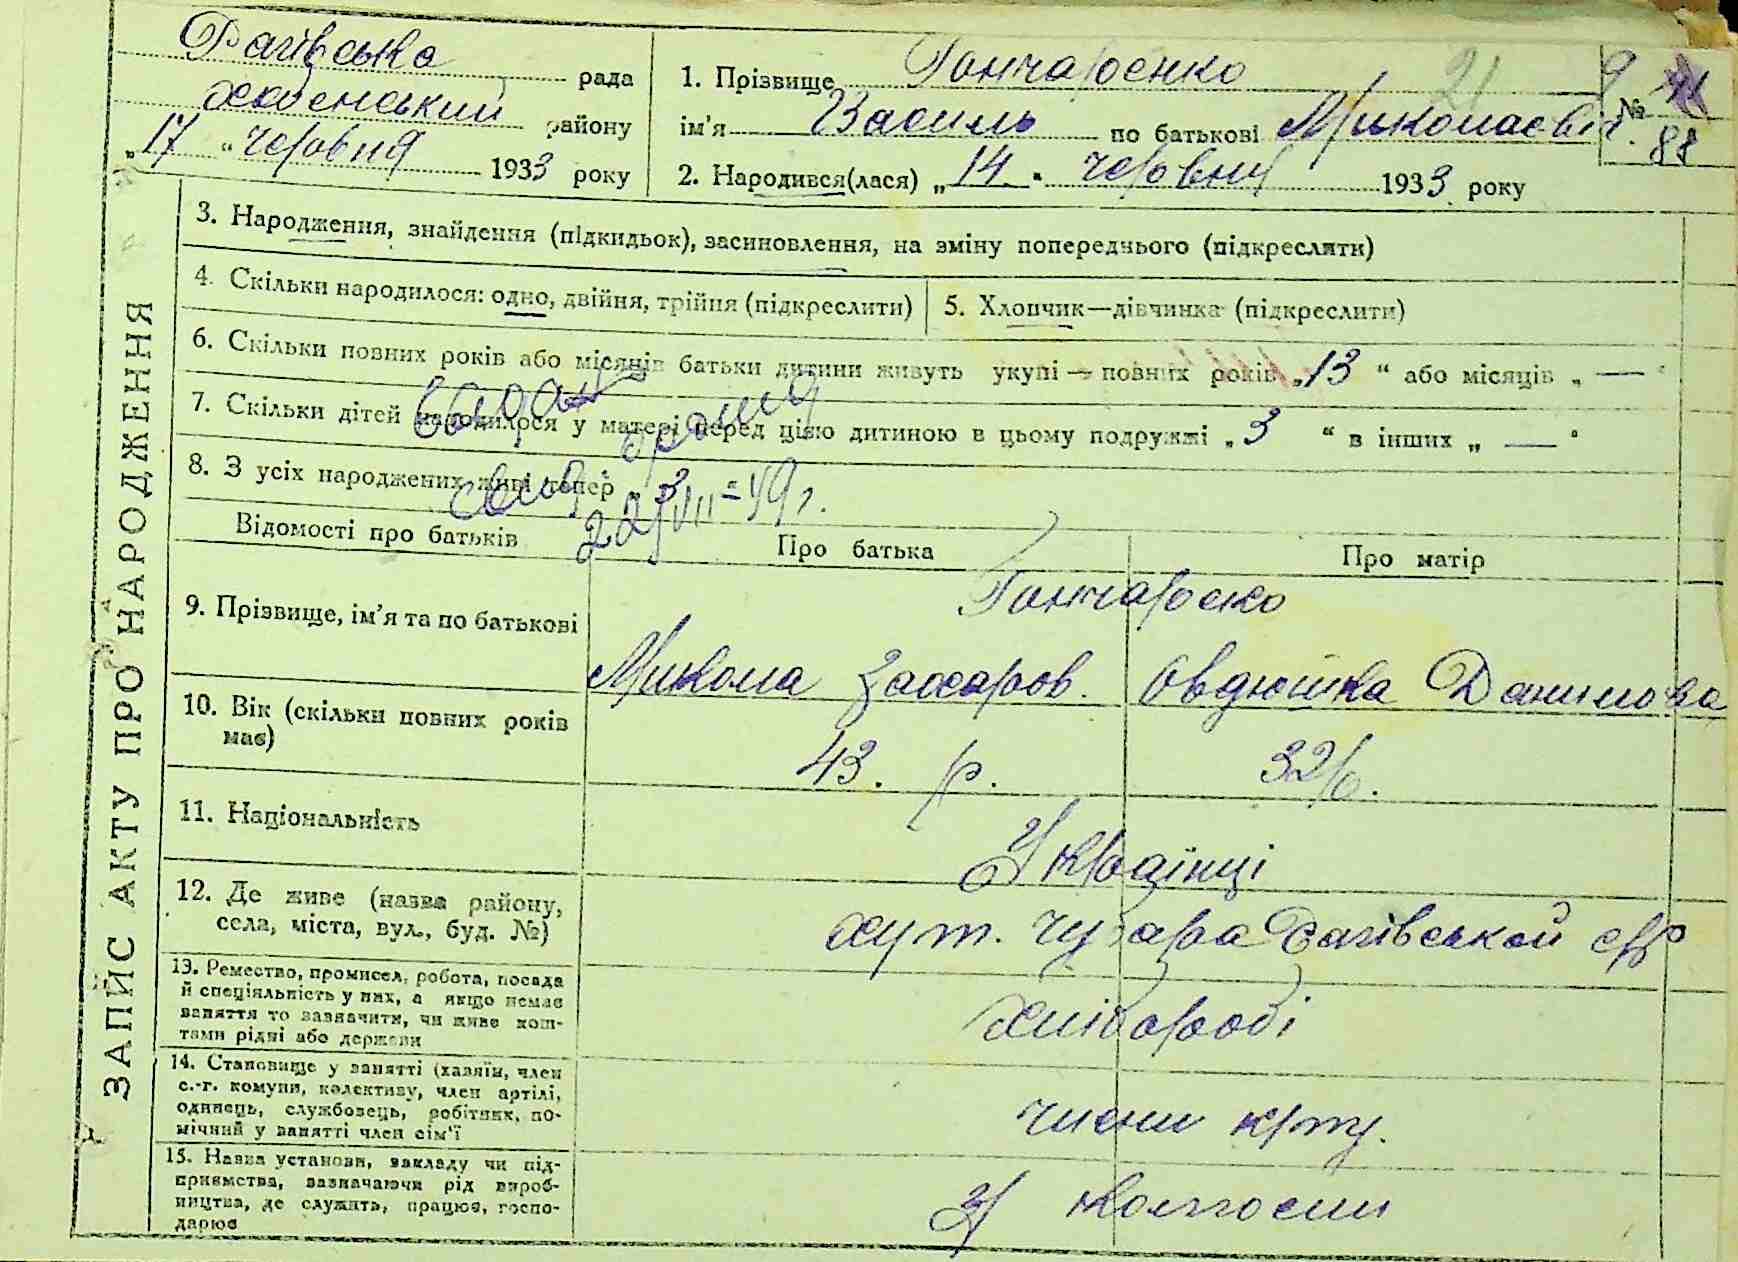 Рагівська рада
Хабенський району
„17“ червня 1933 року
1. Прізвище Гончаренко
ім'я Василь по батькові Миколаєвич
2. Народився(лася) „14“ червня 1933 року
№ 88
21
ЗАПИС АКТУ ПРО НАРОДЖЕННЯ
3. Народження, знайдення (підкидьок), засиновлення, на зміну попереднього (підкреслити)
4. Скільки народилося: одно, двійня, трійня (підкреслити)
5. Хлопчик—дівчинка (підкреслити)
6. Скільки повних років або місяців батьки дитини живуть укупі — повних років „13“ або місяців „—“
7. Скільки дітей народилося у матері перед цією дитиною в цьому подружжі „3“ в інших „—“
8. З усіх народжених живі тепер „3“
22/VII-49 г.
Відомості про батьків
Про батька
Про матір
9. Прізвище, ім'я та по батькові
Гончаренко
Микола Захаров. Овдюшка Данилова
10. Вік (скільки повних років
має)
43. р. 32 р.
11. Національність
Українці
12. Де живе (назва району,
села, міста, вул., буд. №)
хут. Рагівськой с/р
13. Ремество, промисел, робота, посада
й спеціяльність у них, а якщо немає
заняття то зазначити, чи живе кош-
тами рідні або держави
хлібороби
14. Становище у занятті (хазяїн, член
с.-г. комуни, колективу, член артілі,
одинець, службовець, робітник, по-
мічний у занятті член сім'ї
члени к/гту.
15. Назва установи, закладу чи під-
приємства, зазначаючи рід вироб-
ництва, де служить, працює, госпо-
дарює
У колгоспи